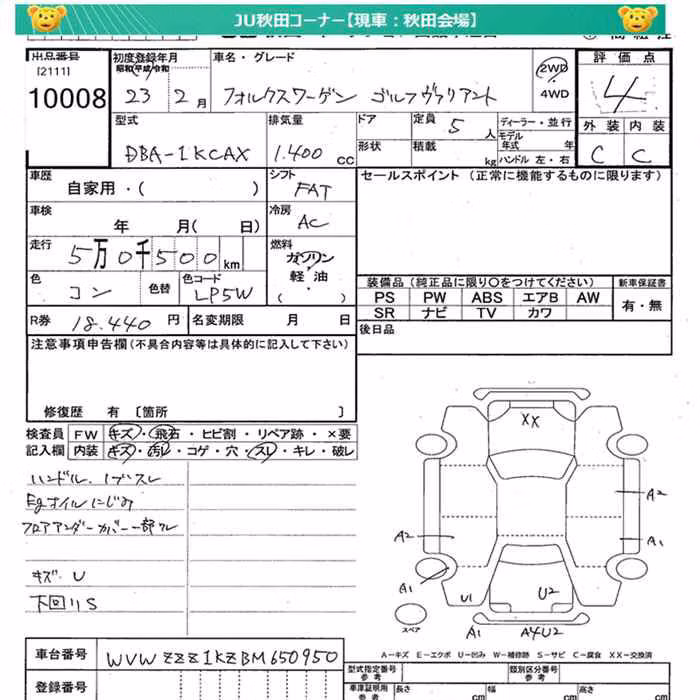 JU秋田コーナー【現車：秋田会場】
出品番号
[2111]
10008
初度登録年月
昭和/平成/令和
23 年 2月
車名・グレード
フォルクスワーゲン ゴルフヴァリアント
2WD
4WD
評価点
4
外装 内装
C C
型式
DBA-1KCAX
排気量
1.400 CC
ドア
形状
定員 5 人
積載 kg
ディーラー・並行
モデル
年式 年
ハンドル 左・右
車歴
自家用・( )
シフト
FAT
セールスポイント (正常に機能するものに限ります)
車検
年 月( 日)
冷房
AC
走行
5万0千500km
燃料
ガソリン
軽・油
( )
色
コン
色替
色コード
LP5W
装備品(純正品に限り〇をつけてください)
新車保証書
PS PW ABS エアB AW
SR ナビ TV カワ
有・無
R券 18.440 円
名変期限 月 日
後日品
注意事項申告欄(不具合内容等は具体的に記入して下さい)
修復歴 有 〔箇所 〕
検査員
記入欄
FW キズ・飛石・ヒビ割・リペア跡・×要
内装 キズ・汚レ・コゲ・穴・スレ・キレ・破レ
ハンドル、1ブスレ
Egオイルにじみ
フロアアンダーカバー一部ワレ
キズ U
下回りS
XX
A2
A1
A2
A1
U1
U2
A1
A4U2
スペア
A－キズ E－エクボ U－凹み W－補修跡 S－サビ C－腐食 XX－交換済
車台番号 WVWZZZ1KZBM650950
登録番号
型式指定番号
参考
類別区分番号
参考
車庫証明用
参考
長さ cm
幅 cm
高さ cm